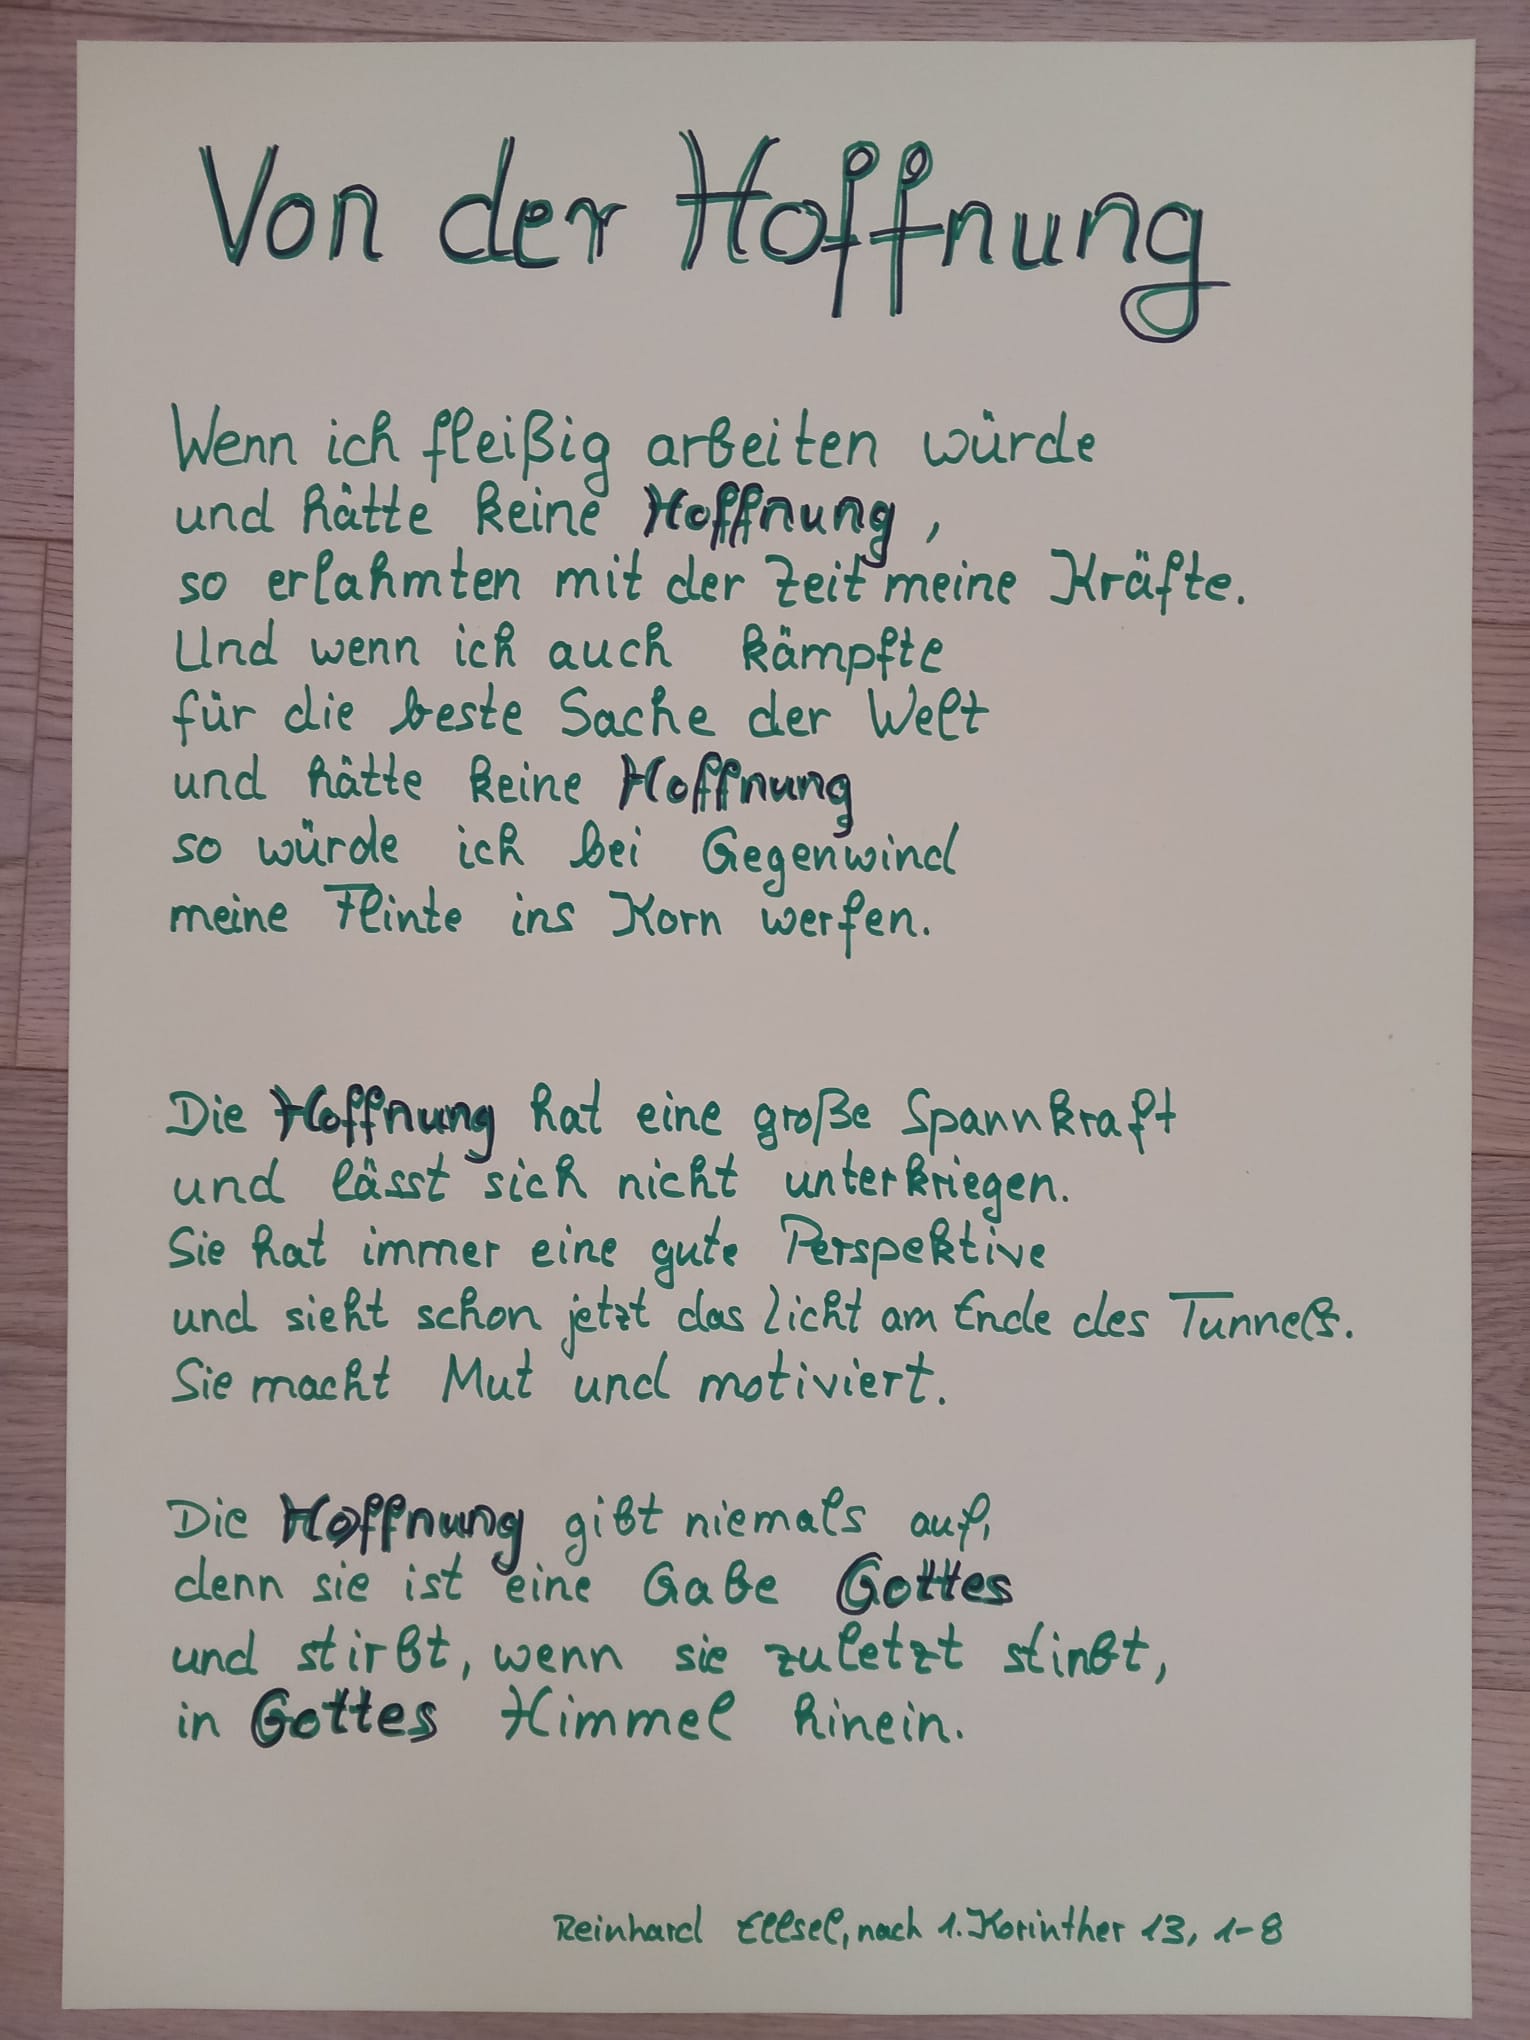 Von der Hoffnung
Wenn ich fleißig arbeiten würde
und hätte keine Hoffnung,
so erlahmten mit der Zeit meine Kräfte.
Und wenn ich auch kämpfte
für die beste Sache der Welt
und hätte keine Hoffnung
so würde ich bei Gegenwind
meine Flinte ins Korn werfen.
Die Hoffnung hat eine große Spannkraft
und lässt sich nicht unterkriegen.
Sie hat immer eine gute Perspektive
und sieht schon jetzt das Licht am Ende des Tunnels.
Sie macht Mut und motiviert.
Die Hoffnung gibt niemals auf,
denn sie ist eine Gabe Gottes
und stirbt, wenn sie zuletzt stirbt,
in Gottes Himmel hinein.
Reinhard Ellsel, nach 1. Korinther 13, 1-8